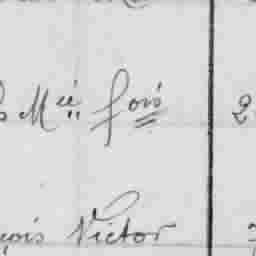 Mie fois 2
çois Victor